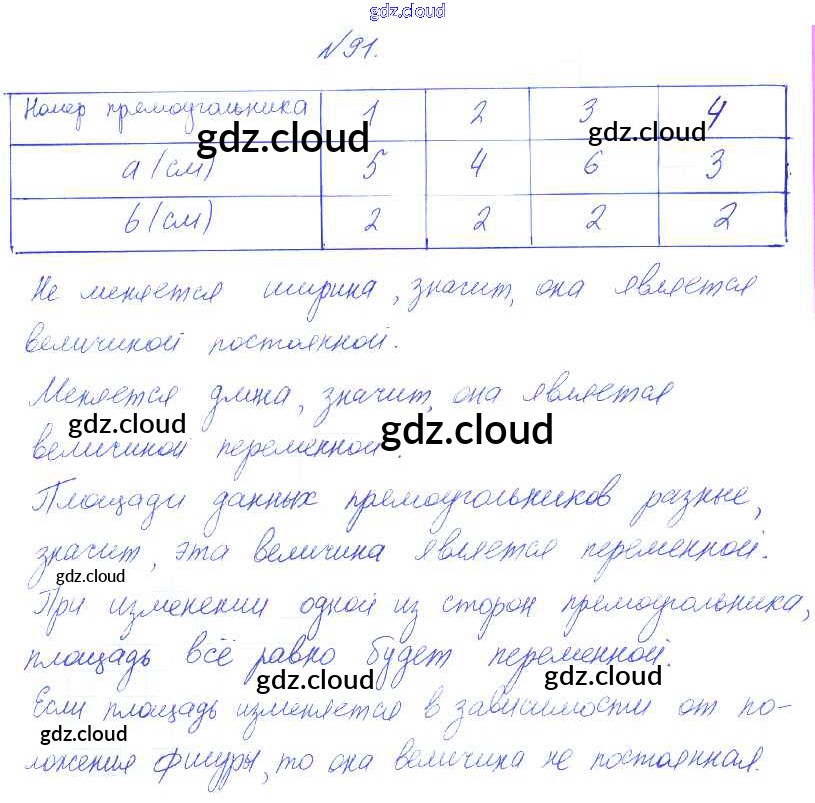 gdz.cloud
№91.
Номер прямоугольника 1 2 3 4
gdz.cloud gdz.cloud
a (см) 5 4 6 3
b (см) 2 2 2 2
Не меняется ширина, значит, она является
величиной постоянной.
Меняется длина, значит, она является
gdz.cloud gdz.cloud
величиной переменной.
Площади данных прямоугольников разные,
значит, эта величина является переменной.
gdz.cloud
При изменении одной из сторон прямоугольника,
площадь всё равно будет переменной.
gdz.cloud gdz.cloud
Если площадь изменяется в зависимости от по-
gdz.cloud
ложения фигуры, то она величина не постоянная.